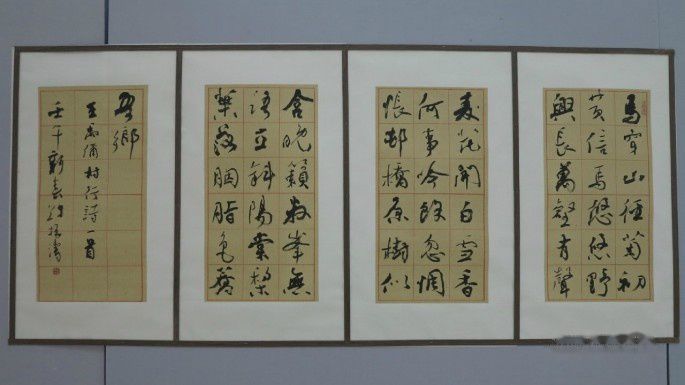 馬穿山徑菊初
黄信馬悠悠野
興長萬壑有聲
麦花開白雪香
何事吟餘忽惆
悵邨橋原樹似
含晚籟數峯無
語立斜陽棠梨
葉落胭脂色蕎
吾鄉
王禹偁村行詩一首
壬午新春